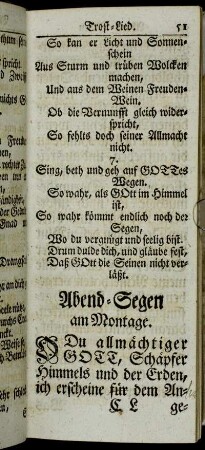 Trost-Lied. 51
So kan er Licht und Sonnen-
schein
Aus Sturm und trüben Wolcken
machen,
Und aus dem Weinen Freuden-
Wein.
Ob die Vernunfft gleich wider-
spricht,
So fehlts doch seiner Allmacht
nicht.
7.
Sing, beth und geh auf GOTTes
Wegen.
So wahr, als GOtt im Himmel
ist,
So wahr kömmt endlich noch der
Segen,
Wo du vergnügt und seelig bist.
Drum dulde dich, und gläube fest,
Daß GOtt die Seinen nicht ver-
läßt.
Abend-Segen
am Montage.
O Du allmächtiger
GOTT, Schöpfer
Himmels und der Erden,
ich erscheine für dem An-
ge-